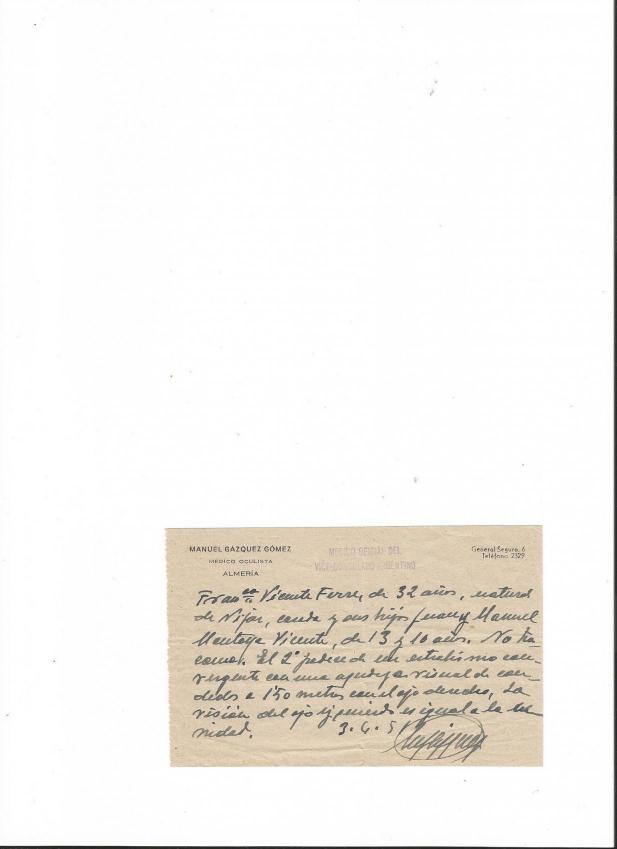 MANUEL GÁZQUEZ GÓMEZ
MÉDICO OCULISTA
ALMERÍA
MEDICO OFICIAL DEL
VICE-CONSULADO ARGENTINO
General Segura, 6
Teléfono 2329
Fran.ca Vicente Ferre, de 32 años, natural
de Nijar, casada y sus hijos Juan y Manuel
Montoya Vicente, de 13 y 10 años. No tra-
coma. El 2º padece de un estrabismo con-
vergente con una agudeza visual de con-
dedos a 1'50 metros con el ojo derecho, La
visión del ojo izquierdo es igual a la u-
nidad. 3. 4. 5